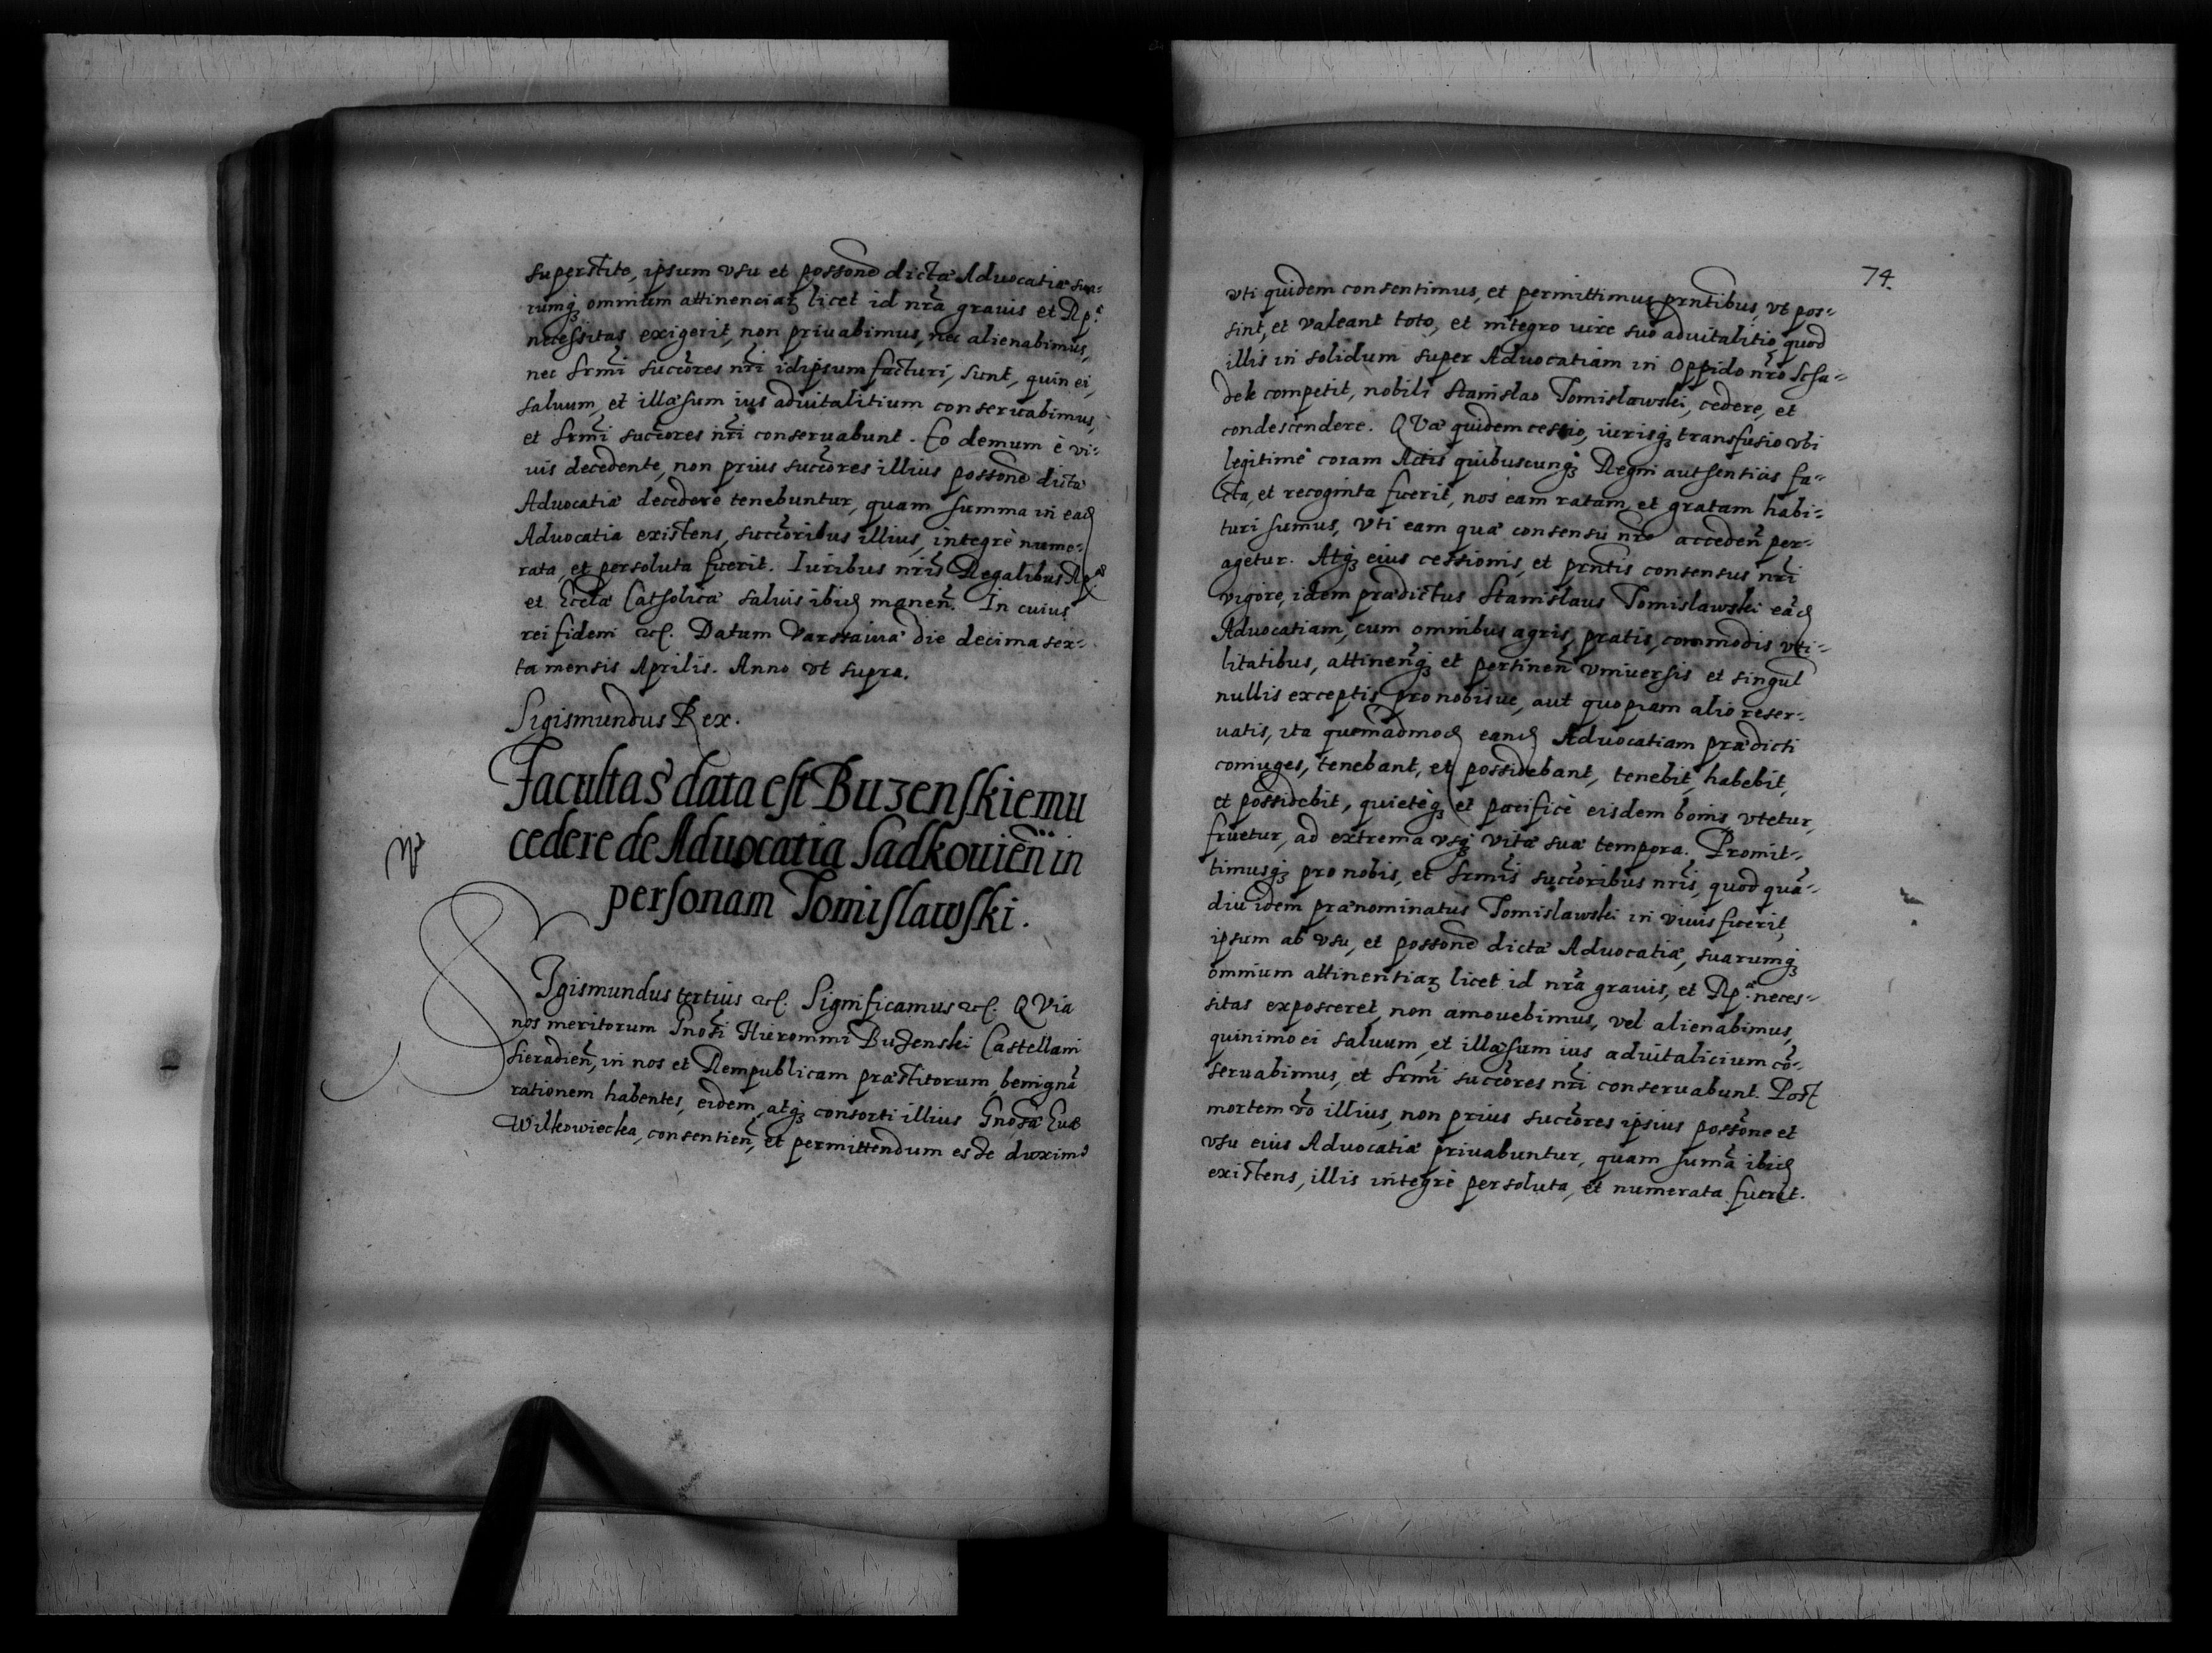 superstite, ipsum vsu et possone dictæ Aduocatiæ sua-
rumq₃ omnium attinenciaꝝ licet id nra grauis et Rp.
necessitas exigerit, non priuabimus, nec alienabimus,
nec Srmi succores nri idipsum facturi sunt, quin ei,
saluum, et illæsum ius aduitalitium conseruabimus,
et Srmi succores nri conseruabunt. Eo demum è vi-
uis decedente, non prius succores illius possone dictæ
Aduocatiæ decedere tenebuntur, quam summa in ead
Aduocatia existens, succoribus illius, integrè nume-
rata, et persoluta fuerit. Iuribus nris Regalibus Rp
et Ecclæ Catholicæ saluis ibid manen. In cuius
rei fidem etc. Datum Varssauiæ die decima sex-
ta mensis Aprilis. Anno vt supra.
Sigismundus Rex.
Facultas data est Buzenskiemu
cedere de Aduocatia Sadkouien in
personam Tomislawski.
SIgismundus tertius etc. Significamus etc. QVia
nos meritorum Gnosi Hieronimi Buzenski Castellani
Sieradien, in nos et Rempublicam præstitorum, benignã
rationem habentes, eidem, atq₃ consorti illius Gnosæ Euæ
Wilkowiecka, consentien, et permittendum esse duxim9
74.
vti quidem consentimus, et permittimus prntibus, vt pos-
sint, et valeant toto, et integro iure suo aduitalitio, quod
illis in solidum super Aduocatiam in Oppido nro Scha-
dek competit, nobili Stanislao Tomislawski, cedere, et
condescendere. QVæ quidem cessio, iurisq₃ transfusio vbi
legitimè coram Actis quibuscunq₃ Regni authenticis fa-
cta, et recoginta fuerit, nos eam ratam, et gratam habi-
turi sumus, vti eam quæ consensu nro acceden per-
agetur. Atq₃ eius cessionis, et prntis consensus nri
vigore, idem prædictus Stanislaus Tomislawski eãd
Aduocatiam, cum omnibus agris, pratis, commodis vti-
litatibus, attinenq₃ et pertinen vniuersis et singul
nullis exceptis, pro nobisue, aut quopiam alio reser-
uatis, ita quemadmod eand Aduocatiam prædicti
coniuges, tenebant, et possidebant, tenebit, habebit,
et possidebit, quietèq₃ et pacificè eisdem bonis vtetur,
fruetur, ad extrema vsq₃ vitæ suæ tempora. Promit-
timusq₃ pro nobis, et Srmis succoribus nris, quod quã-
diu idem prænominatus Tomislawski in viuis fuerit,
ipsum ab vsu, et possone dictæ Aduocatiæ, suarumq₃
omnium attinentiaꝝ licet id nra grauis, et Rp. neces-
sitas exposceret, non amouebimus, vel alienabimus,
quinimo ei saluum, et illæsum ius aduitalicium cõ-
seruabimus, et Srmi succores nri conseruabunt. Post
mortem vo illius, non prius succores ipsius possone et
vsu eius Aduocatiæ priuabuntur, quam sumã ibid
existens, illis integrè persoluta, et numerata fuerit.